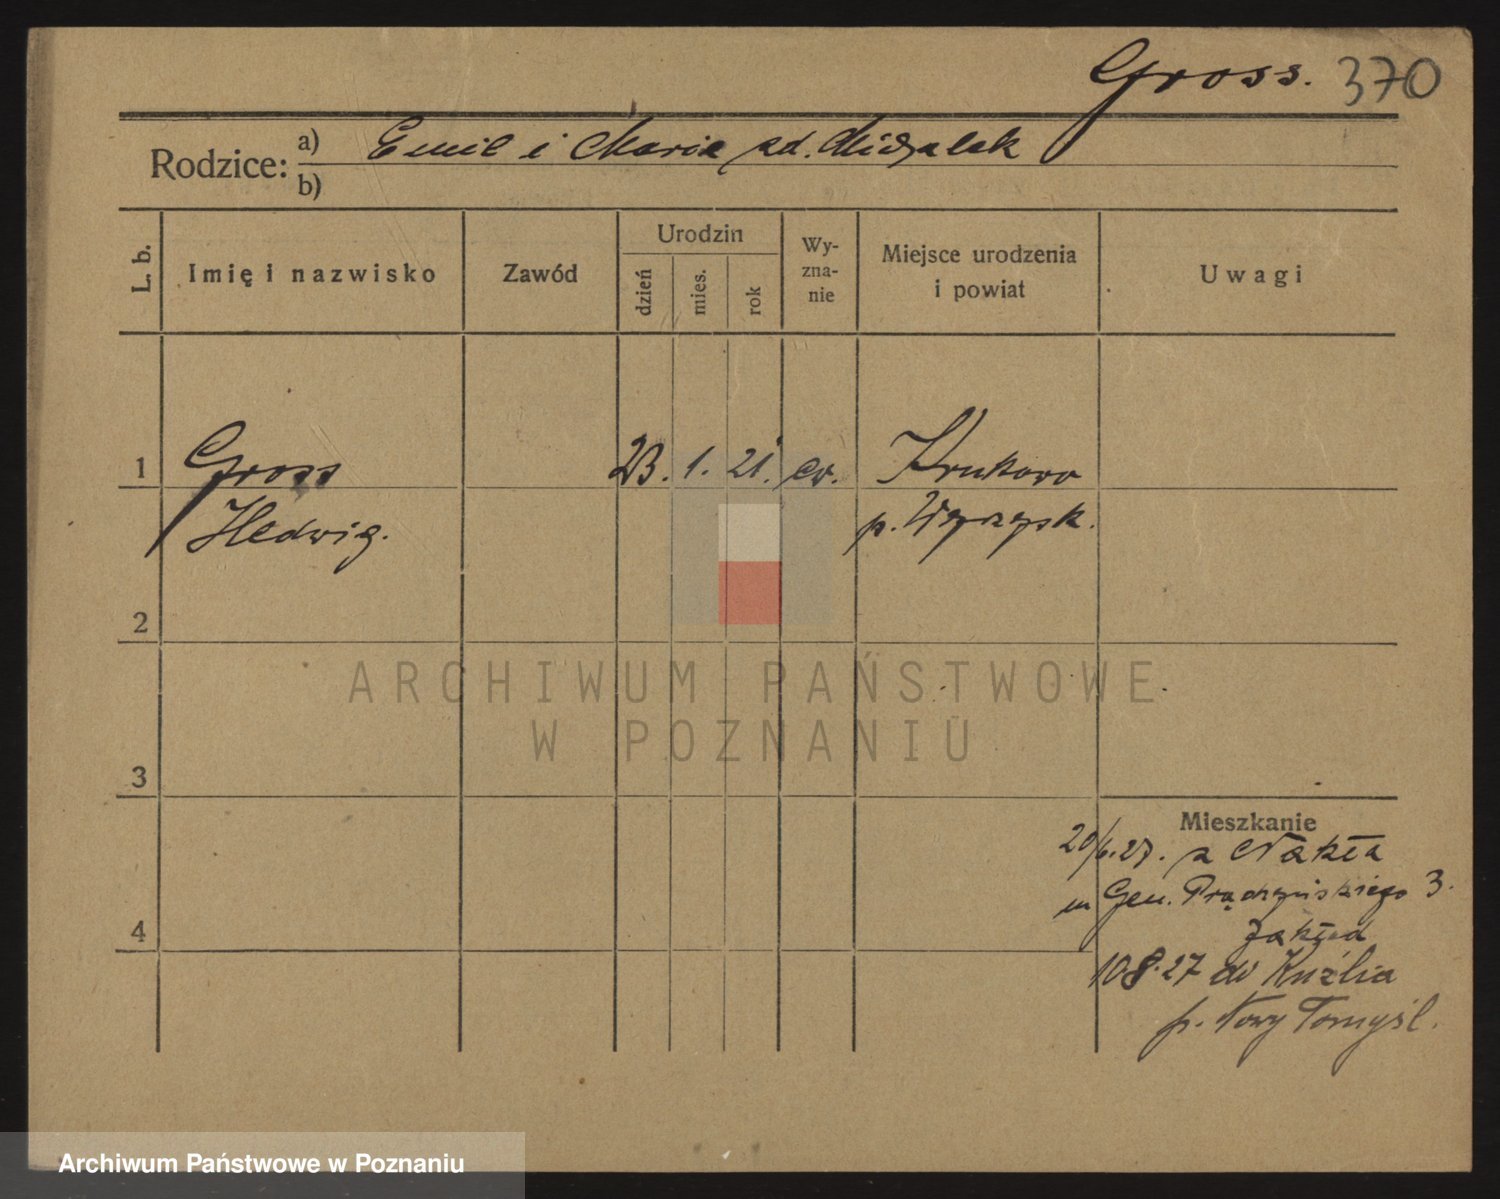 Gross. 370
Rodzice: a) Emil i Maria zd. Michalak
b)
L. b.
Imię i nazwisko
Zawód
Urodzin
dzień
mies.
rok
Wy-
zna-
nie
Miejsce urodzenia
i powiat
Uwagi
1 Gross 23. 1. 21. ew. Krukowo
Hedwig. p. Wyrzysk.
2
3
Mieszkanie
20/6.27. z Nakła
Gen. Prądzyńskiego 3.
Zakład
4
10 8. 27 do Kuźlia
p. Nowy Tomyśl.
ARCHIWUM PAŃSTWOWE
W POZNANIU
Archiwum Państwowe w Poznaniu